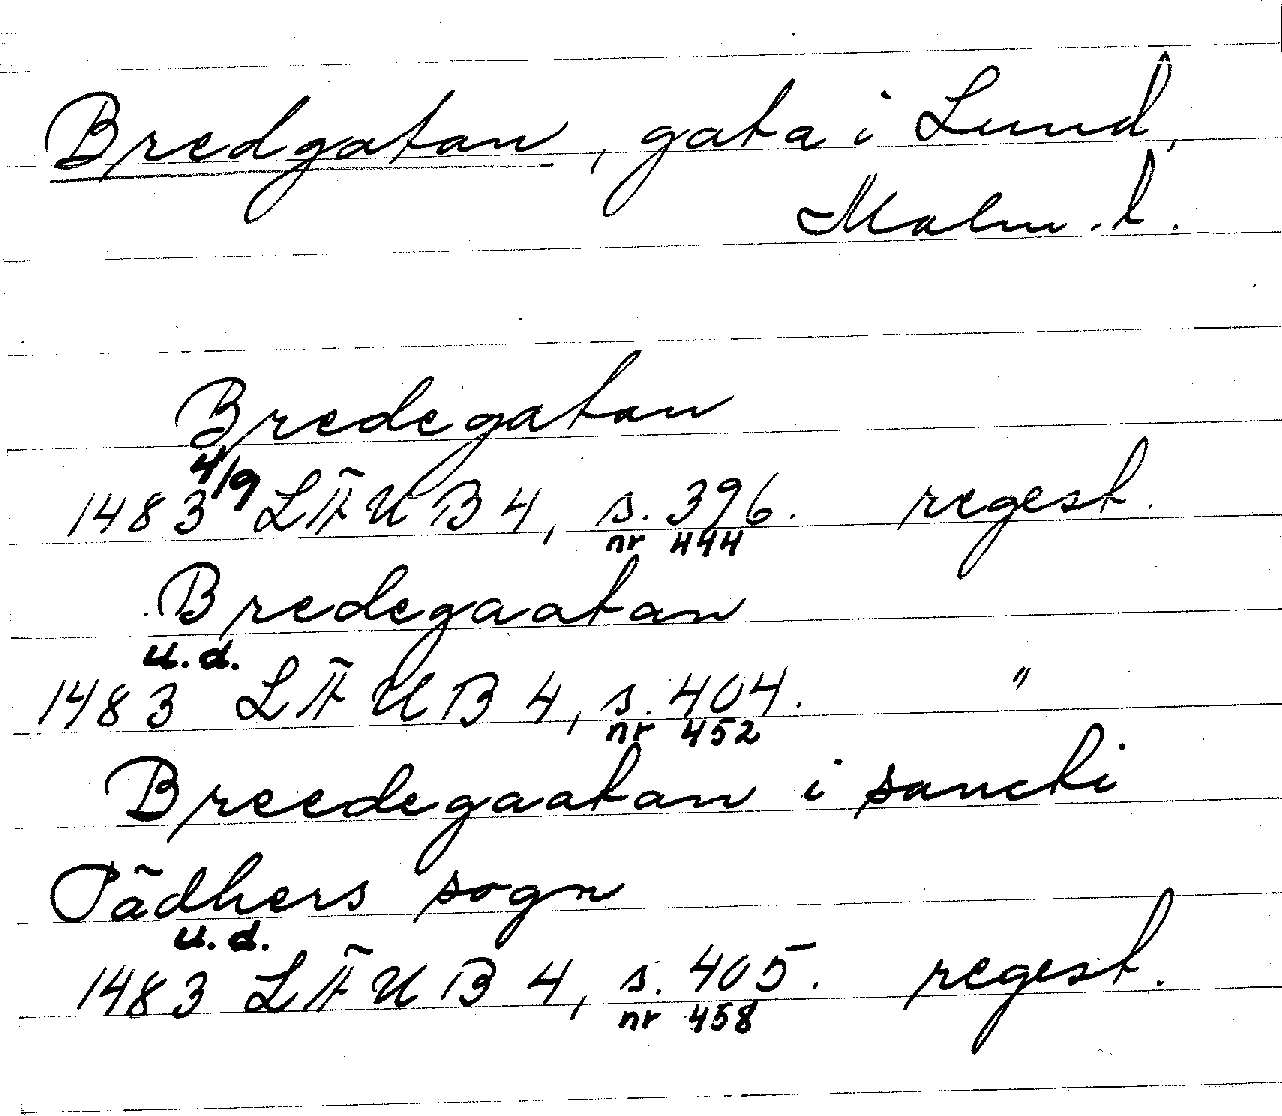 Bredgatan, gata i Lund,
Malm. l.
Bredegatan
1483 4/9 LÄUB 4, s. 396. regest.
nr 444
Bredegaatan
u.d.
1483 LÄUB 4, s. 404. "
nr 452
Breedegaatan i sancti
Pädhers sogn
u.d.
1483 LÄUB 4, s. 405. regest.
nr 458